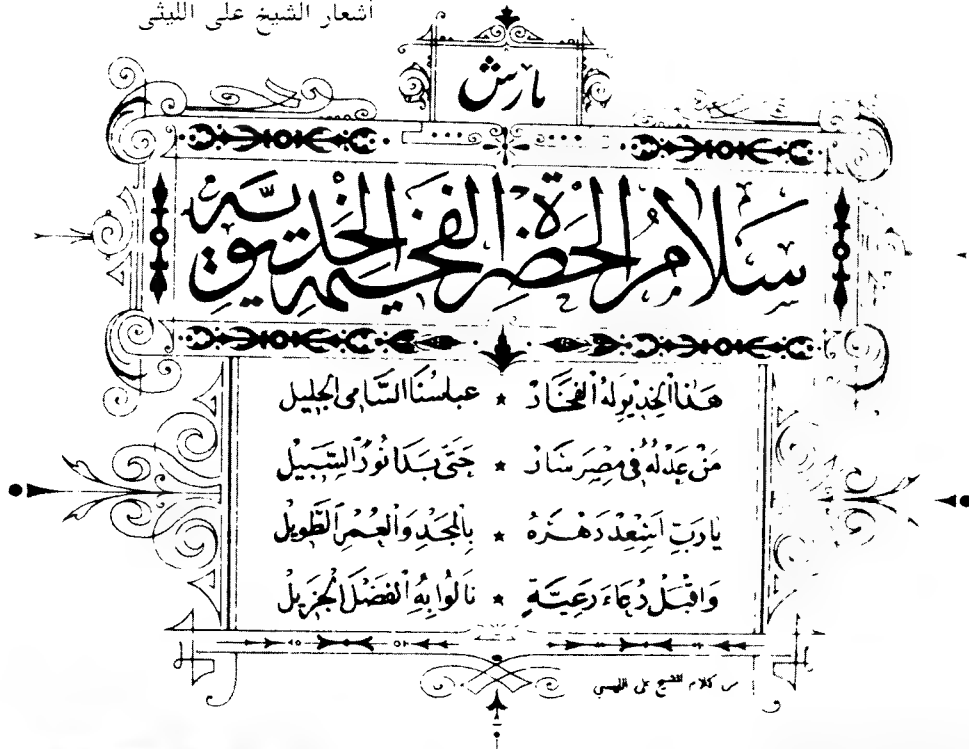 أشعار الشيخ على الليثى
مارش
سَلَامُ الحَضْرَةِ الفَخِيمَةِ الخِديويَّه
هَذَا الْخِدِيوِلَهُ الْفَخَارْ ★ عباسُنَا السَّامِى الجليل
مَنْ عَدْلُهُ فِى مِصرَ سَارْ ★ حَتَّى بَدَا نُورُ السَّبِيلْ
يَا رَبِّ اَسْعِدْ دَهْرَهُ ★ بِالمجْدِ وَالْعُمْرِ الطَّوِيلْ
وَاقْبَلْ دُعَاءَ رَعِيَّةٍ ★ نَالُوا بِهِ الْفَضْلَ الْجَزِيلْ
من كلام الشيخ على الليثى